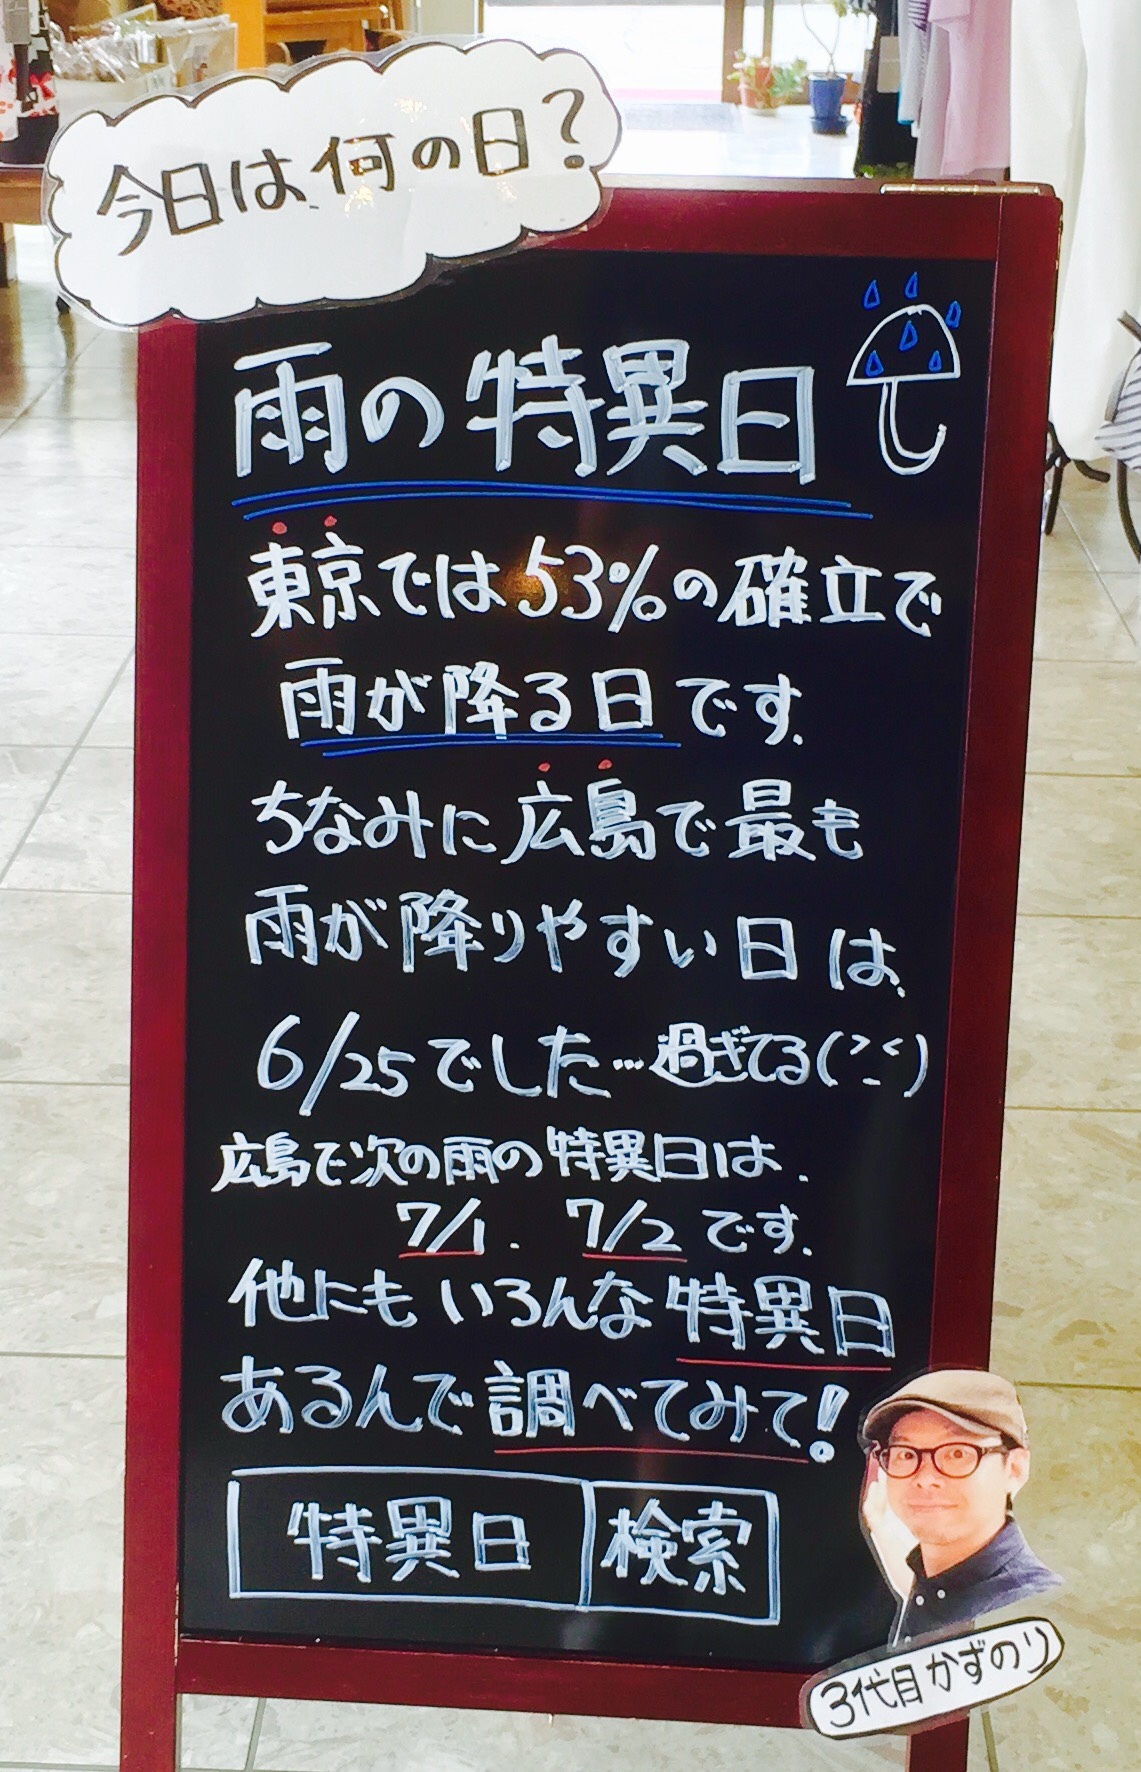 今日は何の日?
雨の特異日
東京では53%の確立で
雨が降る日です.
ちなみに広島で最も
雨が降りやすい日は.
6/25でした…過ぎてる(>_<)
広島で次の雨の特異日は.
7/1. 7/2です.
他にもいろんな特異日
あるんで調べてみて!
特異日 検索
3代目かずのり